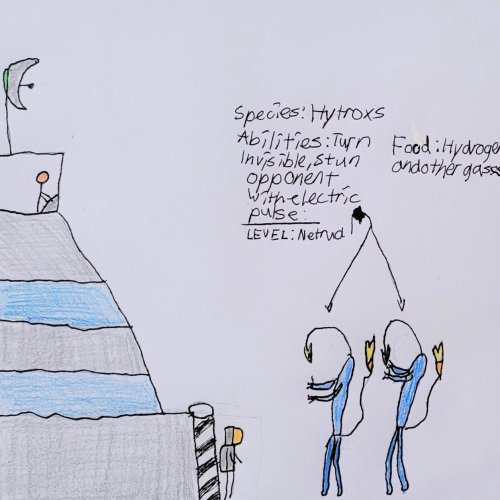 Species: Hytroxs
Abilities: Turn
Invisible, stun
opponent
with electric
pulse:
LEVEL: Netrud
Food: Hydrogen
and other gasses